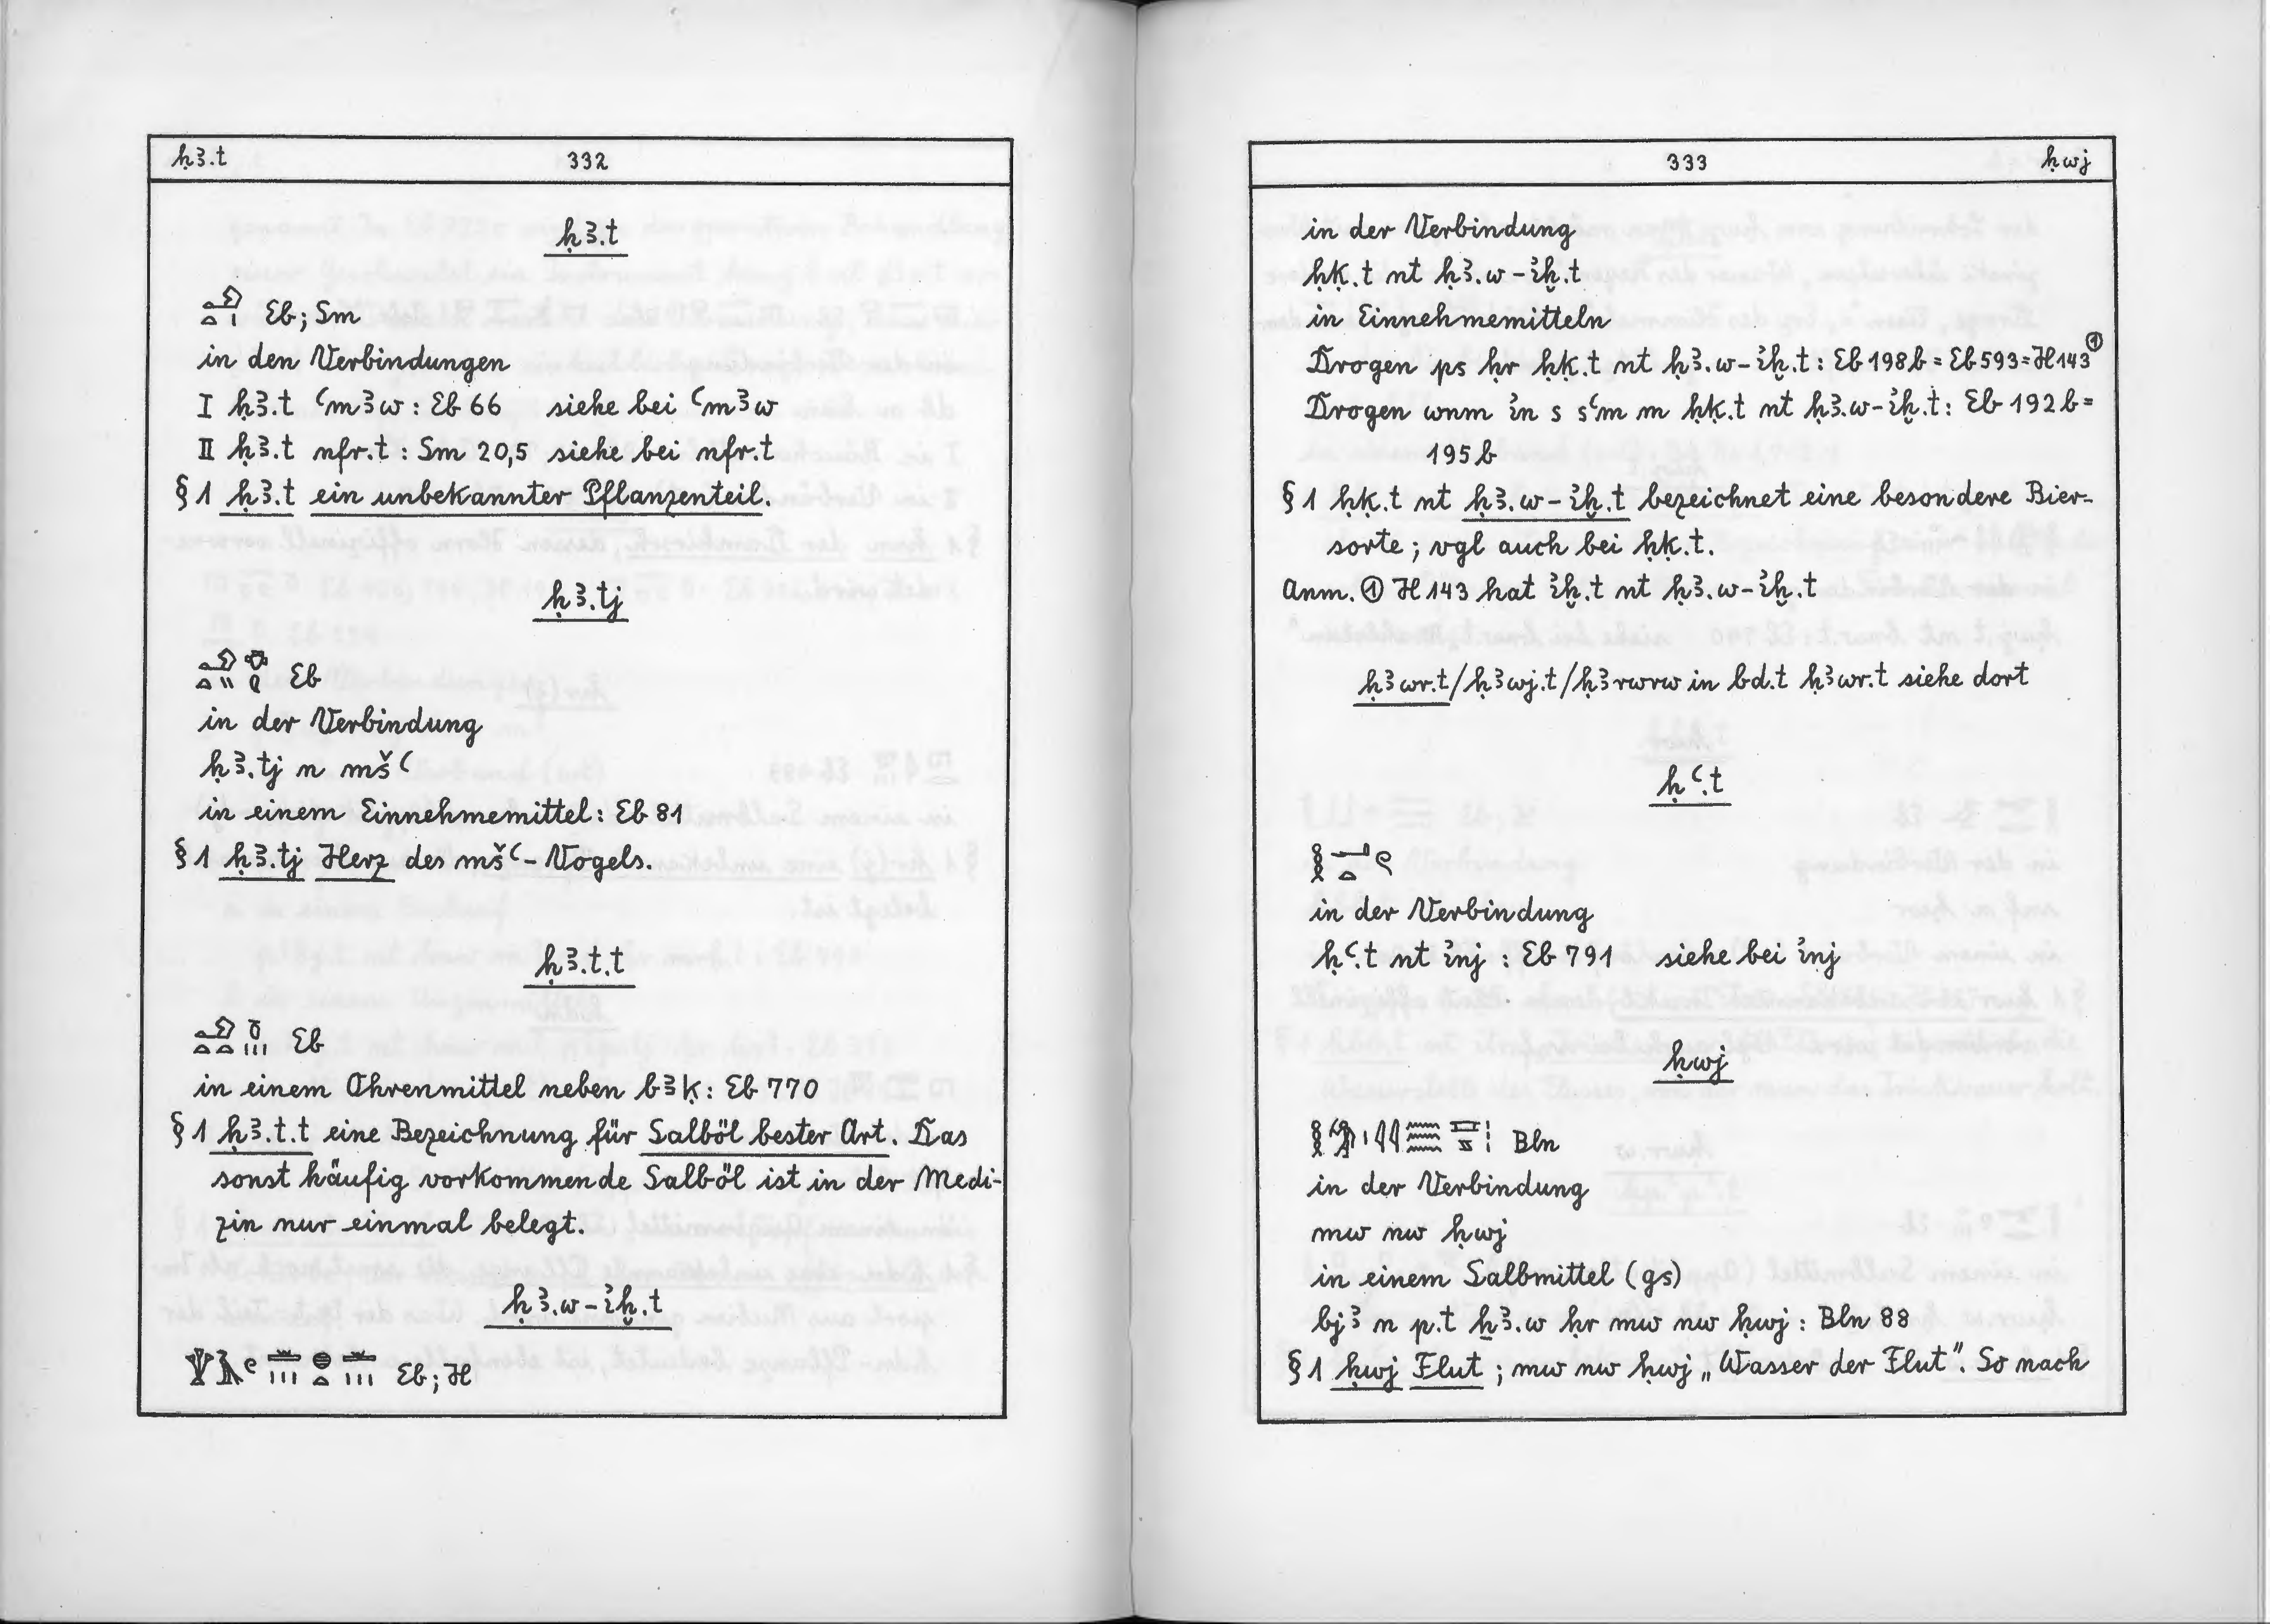 ḥꜣ.t 332
ḥꜣ.t
Eb; Sm
in den Verbindungen
I ḥꜣ.t ꜥmꜣw : Eb 66 siehe bei ꜥmꜣw
II ḥꜣ.t nfr.t : Sm 20,5 siehe bei nfr.t
§ 1 ḥꜣ.t ein unbekannter Pflanzenteil.
ḥꜣ.tj
Eb
in der Verbindung
ḥꜣ.tj n mšꜥ
in einem Einnehmemittel: Eb 81
§ 1 ḥꜣ.tj Herz des mšꜥ-Vogels.
ḥꜣ.t.t
Eb
in einem Ohrenmittel neben bꜣḳ: Eb 770
§ 1 ḥꜣ.t.t eine Bezeichnung für Salböl bester Art. Das
sonst häufig vorkommende Salböl ist in der Medi-
zin nur einmal belegt.
ḥꜣ.w-ỉḫ.t
Eb; H
333 ḥwj
in der Verbindung
ḥḳ.t nt ḥꜣ.w-ỉḫ.t
in Einnehmemitteln
Drogen ps ḥr ḥḳ.t nt ḥꜣ.w-ỉḫ.t: Eb 198b = Eb 593 = H 143 ①
Drogen wnm ỉn s sꜥm m ḥḳ.t nt ḥꜣ.w-ỉḫ.t: Eb 192b =
195b
§ 1 ḥḳ.t nt ḥꜣ.w-ỉḫ.t bezeichnet eine besondere Bier-
sorte; vgl auch bei ḥḳ.t.
Anm. ① H 143 hat ỉḫ.t nt ḥꜣ.w-ỉḫ.t
ḥꜣwr.t/ḥꜣwj.t/ḥꜣrwrw in bd.t ḥꜣwr.t siehe dort
ḥꜥ.t
in der Verbindung
ḥꜥ.t nt ỉnj : Eb 791 siehe bei ỉnj
ḥwj
Bln
in der Verbindung
mw nw ḥwj
in einem Salbmittel (gs)
bjꜣ n p.t ẖꜣ.w ḥr mw nw ḥwj : Bln 88
§ 1 ḥwj Flut ; mw nw ḥwj „Wasser der Flut". So nach